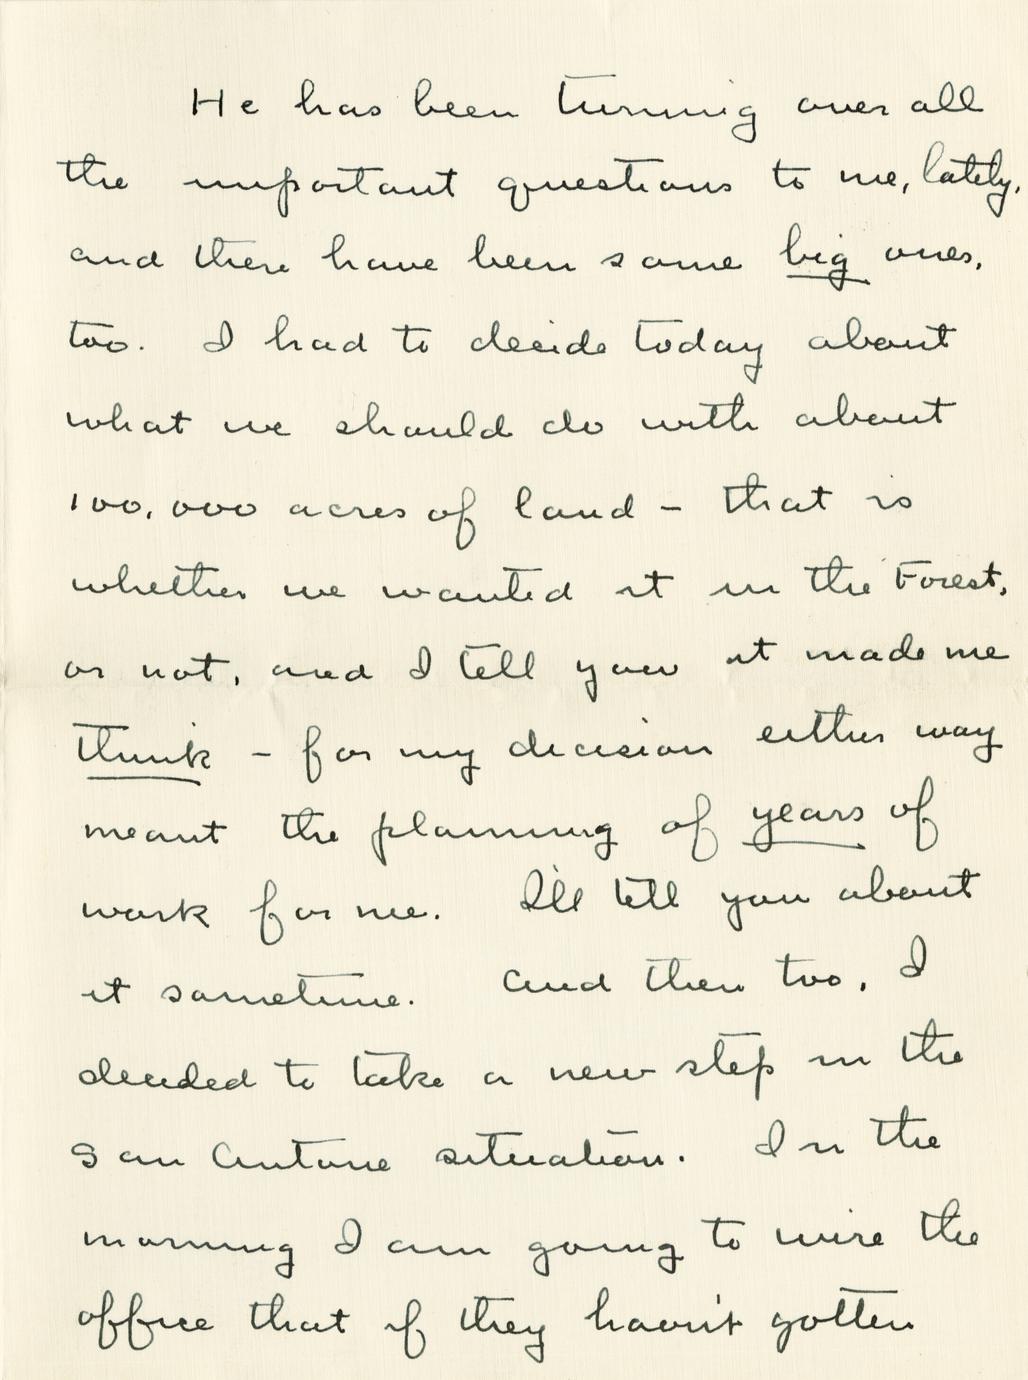 He has been turning over all
the important questions to me, lately,
and there have been some big ones,
too. I had to decide today about
what we should do with about
100,000 acres of land - that is
whether we wanted it in the Forest,
or not, and I tell you it made me
think - for my decision either way
meant the planning of years of
work for me. I'll tell you about
it sometime. And then too, I
decided to take a new step in the
San Antone situation. In the
morning I am going to wire the
office that if they havn't gotten